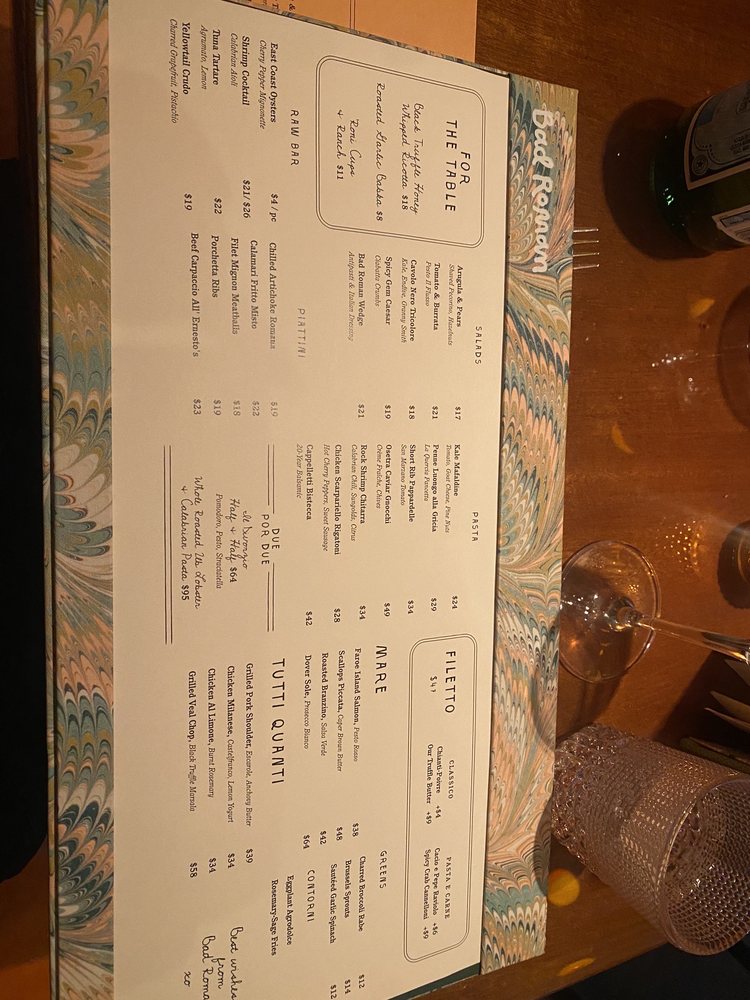 Bad Roman
FOR
THE TABLE
Black Truffle Honey
Whipped Ricotta $18
Roasted Garlic Babka $8
'Roni Cups
+ Ranch $11
RAW BAR
East Coast Oysters $4 / pc
Cherry Pepper Mignonette
Shrimp Cocktail $21/ $26
Calabrian Aioli
Tuna Tartare $22
Agrumato, Lemon
Yellowtail Crudo $19
Charred Grapefruit, Pistachio
SALADS
Arugula & Pears $17
Shaved Pecorino, Hazelnuts
Tomato & Burrata $21
Pesto Il Flusso
Cavolo Nero Tricolore $18
Kale, Endive, Granny Smith
Spicy Gem Caesar $19
Ciabatta Crumbs
Bad Roman Wedge $21
Antipasti & Italian Dressing
PIATTINI
Chilled Artichoke Romana $19
Calamari Fritto Misto $22
Filet Mignon Meatballs $18
Porchetta Ribs $19
Beef Carpaccio All' Ernesto's $23
PASTA
Kale Mafaldine $24
Tomato, Goat Cheese, Pine Nuts
Penne Luongo alla Gricia $29
La Quercia Pancetta
Short Rib Pappardelle $34
San Marzano Tomato
Osetra Caviar Gnocchi $49
Crème Fraîche, Chives
Rock Shrimp Chitarra $34
Calabrian Chili, Scungolds, Citrus
Chicken Scarpariello Rigatoni $28
Hot Cherry Peppers, Sweet Sausage
Cappelletti Bistecca $42
20-Year Balsamic
DUE
POR DUE
Il Divorzio
Half + Half $64
Pomodoro, Pesto, Stracciatella
Whole Roasted Lobster
+ Calabrian Pasta $95
FILETTO
CLASSICO
Chianti-Poivre +$4
Our Truffle Butter +$9
PASTA E CARNE
Cacio e Pepe Raviolo +$6
Spicy Crab Cannelloni +$9
MARE
Faroe Island Salmon, Pesto Rosso $38
Scallops Piccata, Caper Brown Butter $48
Roasted Branzino, Salsa Verde $42
Dover Sole, Prosecco Bianco $64
TUTTI QUANTI
Grilled Pork Shoulder, Escarole, Anchovy Butter $39
Chicken Milanese, Castelfranco, Lemon Yogurt $34
Chicken Al Limone, Burnt Rosemary $34
Grilled Veal Chop, Black Truffle Marsala $58
GREENS
Charred Broccoli Rabe $12
Brussels Sprouts $14
Sautéed Garlic Spinach $12
CONTORNI
Eggplant Agrodolce
Rosemary-Sage Fries
Best wishes
from
Bad Roma
xo